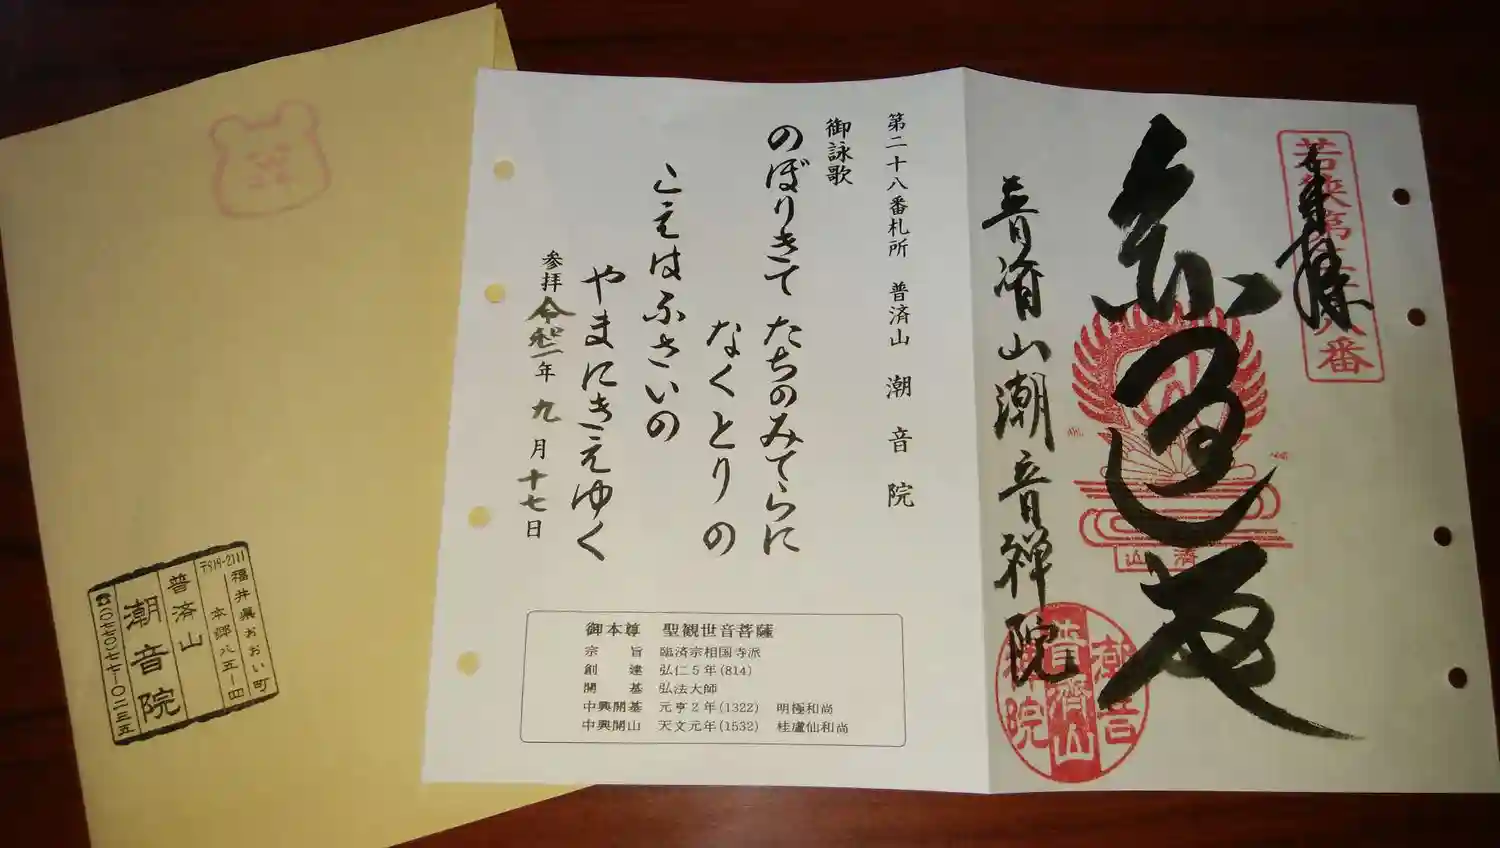 奉拝
若狭第二十八番
円通殿
普済山潮音禅院
済山
第二十八番札所 普済山 潮音院
御詠歌
のぼりきて たちのみてらに
なくとりの
こえはふさいの
やまにきこえゆく
参拝 令和二年 九月 十七日
御本尊 聖観世音菩薩
宗旨 臨済宗相国寺派
創建 弘仁5年(814)
開基 弘法大師
中興開基 元亨2年(1322) 明極和尚
中興開山 天文元年(1532) 桂盧仙和尚
〒919-2111
福井県おおい町
本郷八五-四
普済山
潮音院
☎〇七七〇-七七-〇二三五